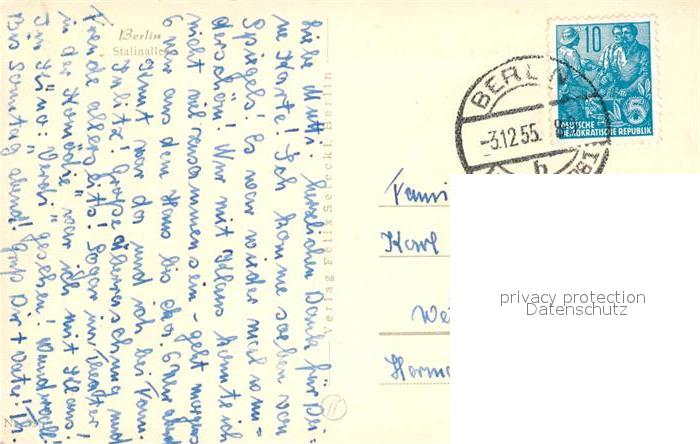 Berlin
Stalinallee
Liebe Mutti! Herzlichen Dank für Dei-
ne Karte! Ich komme soeben von
Spiegels! Es war wieder mal wun-
derschön! Nur mit Klaus konnte ich
nicht viel zusammen sein - geht morgens
6 Uhr aus dem Haus bis ca. 6 Uhr abend
Sonst war da und ich bei Fam.
Große Überraschung und
Freude allerseits! Sogar im Theater!
in der Komödie war ich mit Klaus.
Im Kino: gesehen! Wundervoll!
Bis Sonntag abend! Gruß Dir + Vater!
Verlag Felix Setecki, Berlin
10
DEUTSCHE
DEMOKRATISCHE REPUBLIK
BERLIN
-3.12.55.
b
Fami
Karl
We
Herma
privacy protection
Datenschutz